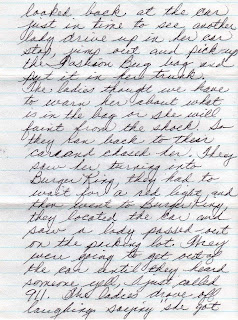 looked back at the car
just in time to see another
lady drive up in her car
stop, jump out and pick up
the Fashion Bug bag and
put it in her trunk.
The ladies though we have
to warn her about what
is in the bag or she will
faint from the shock. So
they ran back to their
car and chased her. They
saw her turning into
Burger King. They had to
wait for a red light, and
then went to Burger King
they located the car and
saw a lady passed out
on the parking lot. They
were going to get out of
the car until they heard
someone yell, I just called
911. The ladies drove off
laughing saying she got